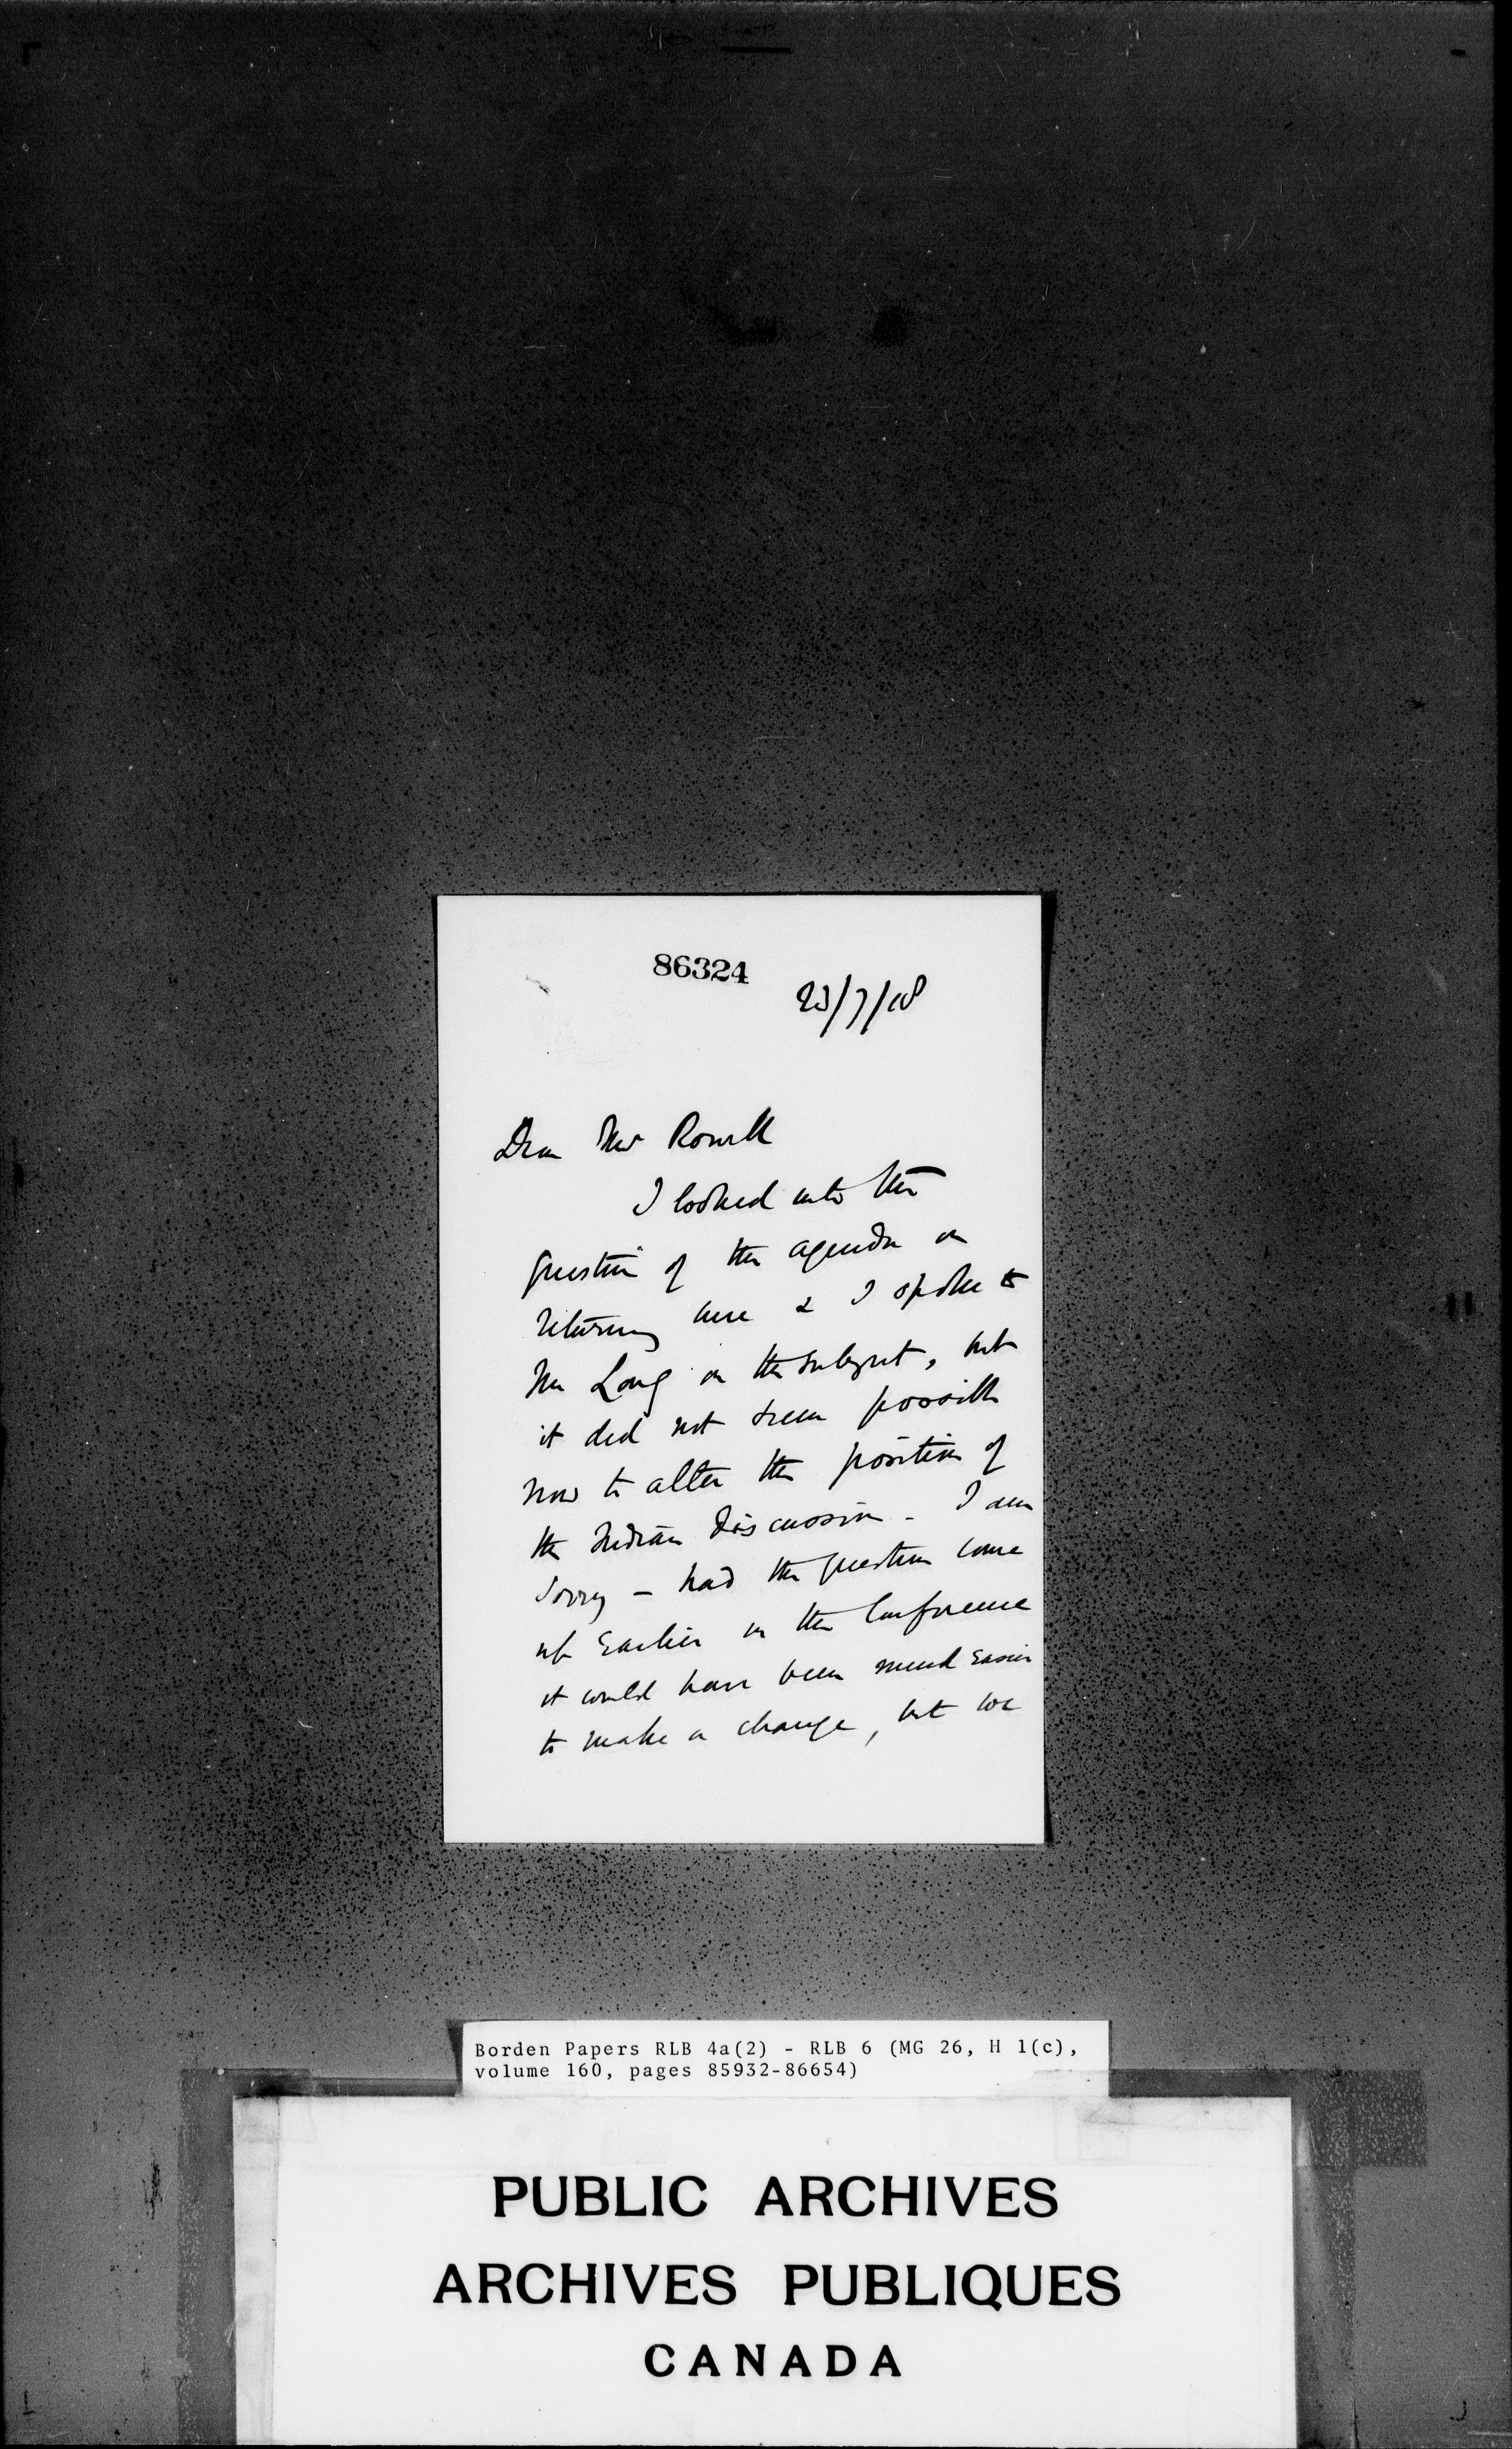 86324
23/7/18
Dear Mr Rowell
I looked into the
question of the agenda on
returning here & I spoke to
Mr Long on the subject, but
it did not seem possible
now to alter the position of
the Indian discussion - I am
sorry - had the question come
up earlier in the Conference
it would have been much easier
to make a change, but we
Borden Papers RLB 4a(2) - RLB 6 (MG 26, H 1(c),
volume 160, pages 85932-86654)
PUBLIC ARCHIVES
ARCHIVES PUBLIQUES
CANADA